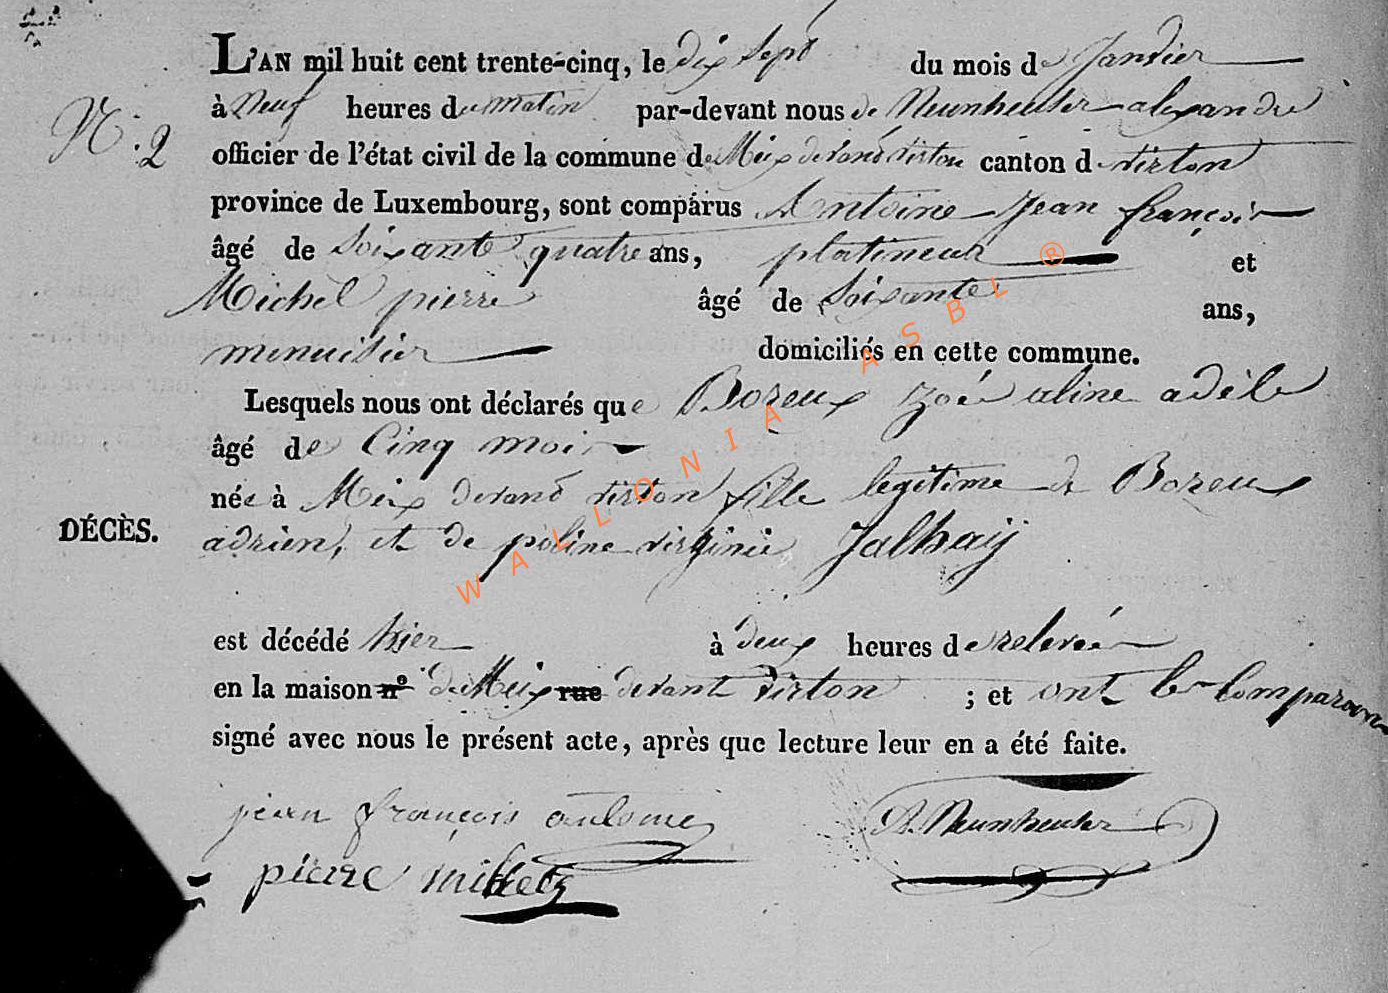 L'AN mil huit cent trente-cinq, le dix sept du mois de Janvier
à Neuf heures du matin par-devant nous de Neunheuser alexandre
N°. 2
officier de l'état civil de la commune de Meix devand virton canton de virton
province de Luxembourg, sont comparus Antoine Jean françois
âgé de Soixante quatre ans, platineur et
Michel pierre âgé de Soixante ans,
menuisier domiciliés en cette commune.
Lesquels nous ont déclarés que Boreux Zoé aline adèle
âgé de Cinq mois
née à Meix devand virton fille legitime de Boreux
DÉCÈS.
adrien, et de poline virginie Jalhaÿ
est décédé hier à deux heures de relevée
en la maison n° de Meix rue devant virton ; et ont les Comparans
signé avec nous le présent acte, après que lecture leur en a été faite.
jean françois antoine
A. Neunheuser
pierre michel
WALLONIA ASBL ®